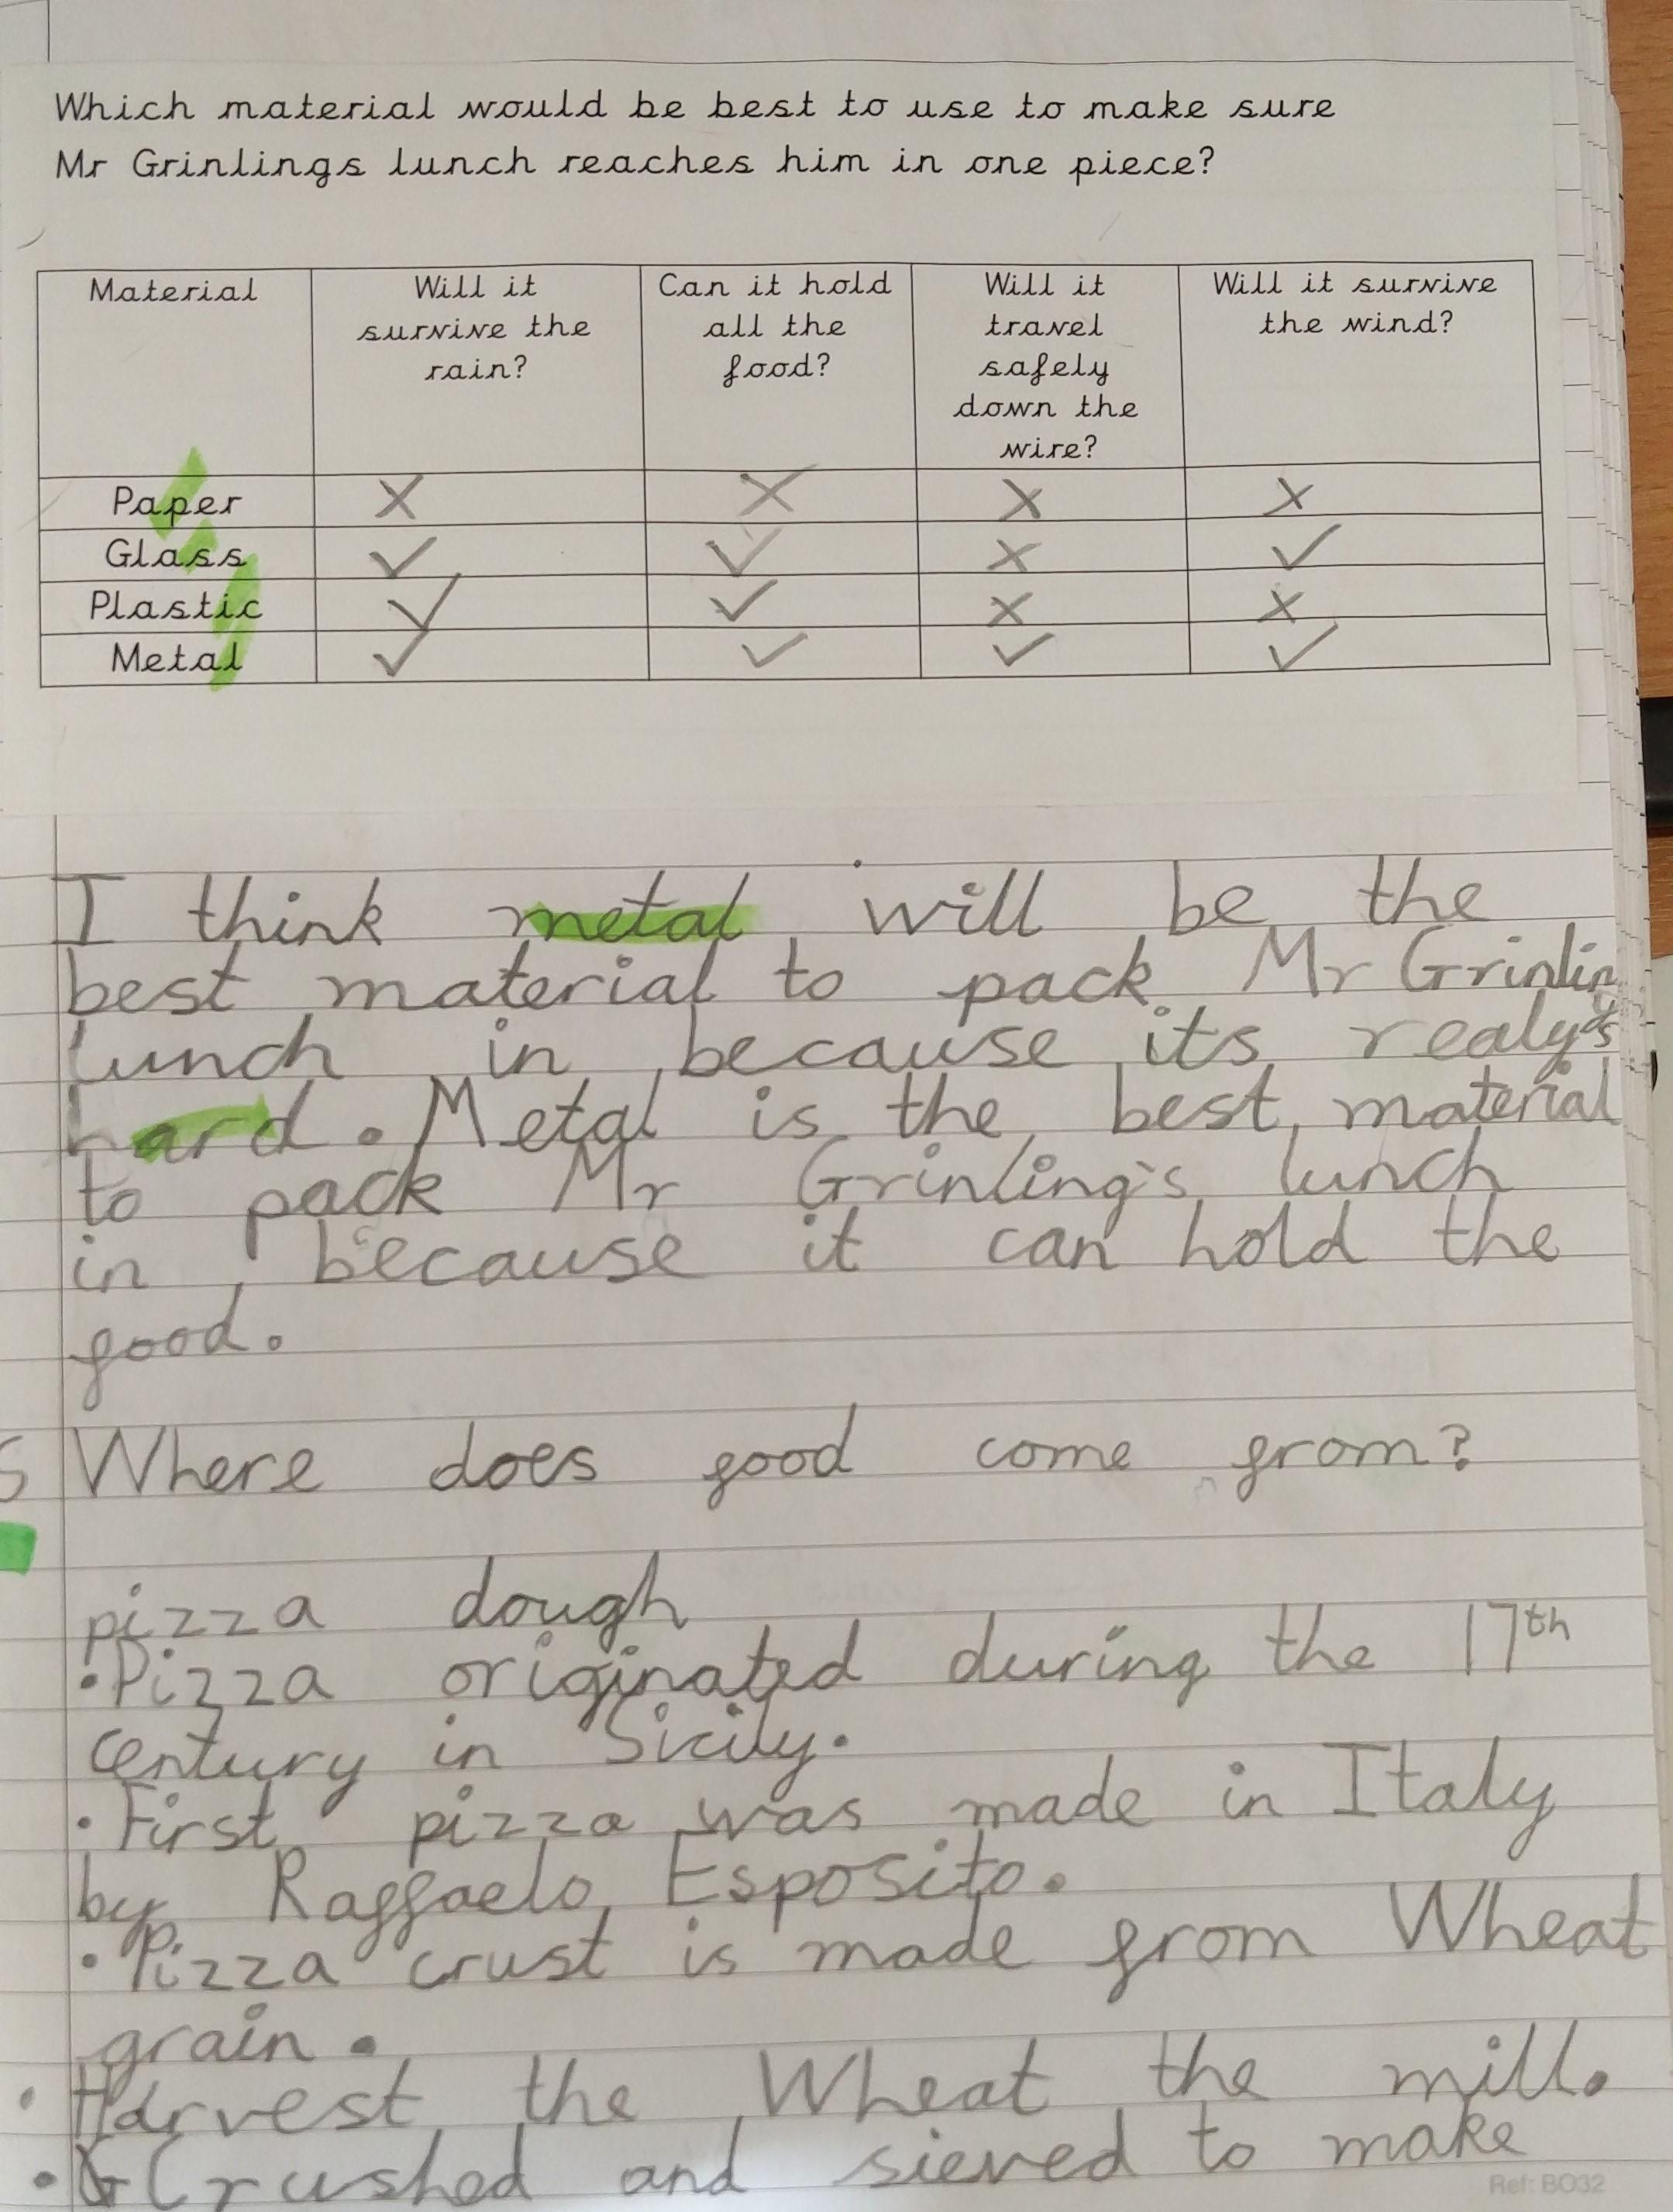 Which material would be best to use to make sure
Mr Grinlings lunch reaches him in one piece?
Material | Will it survive the rain? | Can it hold all the food? | Will it travel safely down the wire? | Will it survive the wind?
Paper | ✗ | ✗ | ✗ | ✗
Glass | ✓ | ✓ | ✗ | ✓
Plastic | ✓ | ✓ | ✗ | ✗
Metal | ✓ | ✓ | ✓ | ✓
I think metal will be the
best material to pack Mr Grinling's
lunch in because its realy
hard. Metal is the best material
to pack Mr Grinling's lunch
in, because it can hold the
food.
Where does food come from?
pizza dough
• Pizza originated during the 17th
century in Sicily.
• First pizza was made in Italy
by Raffaelo Esposito.
• Pizza crust is made from Wheat
grain.
• Harvest the Wheat the mill.
• Crushed and sieved to make
Ref: BO32